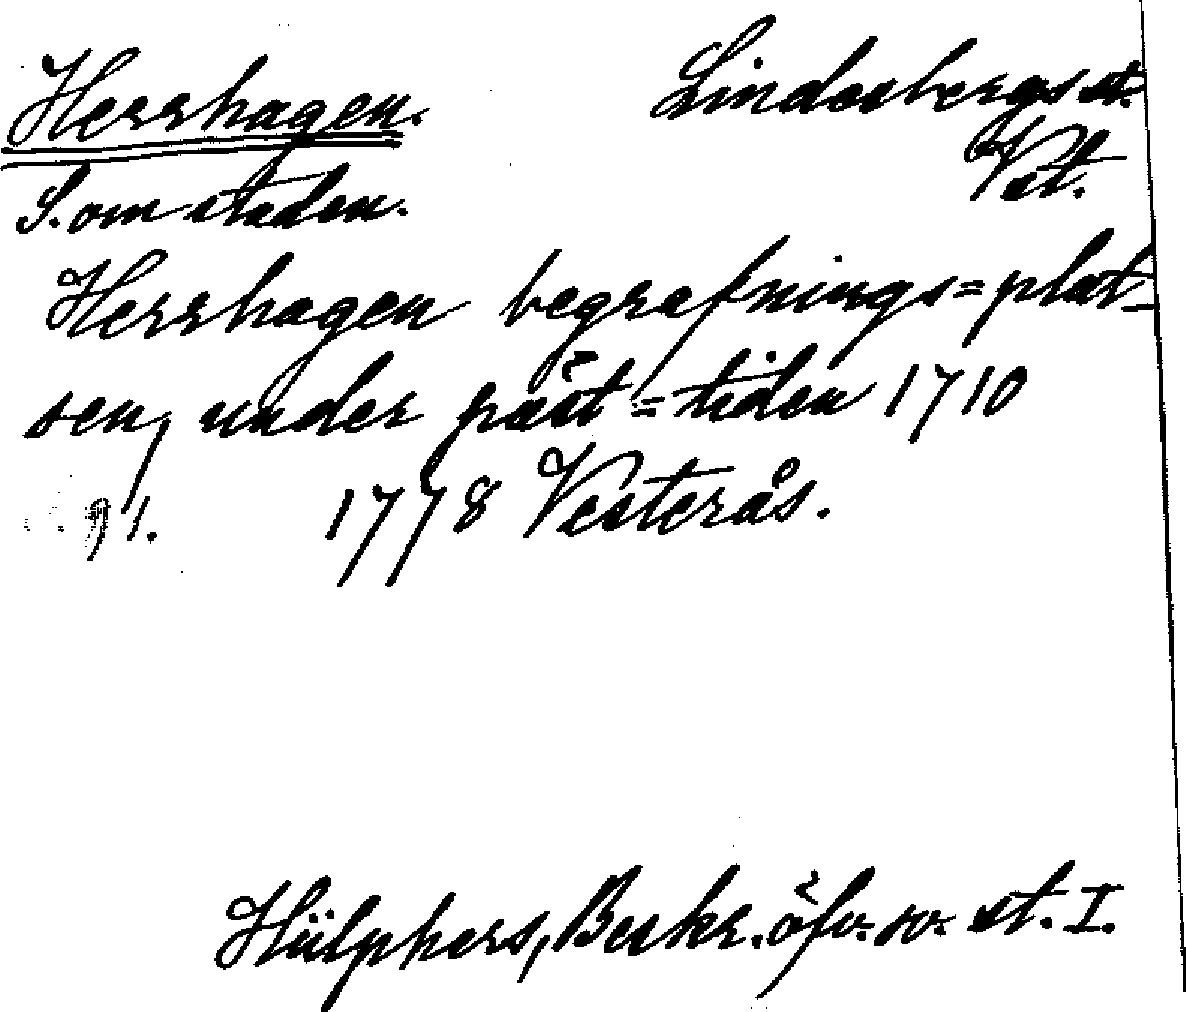 Herrhagen. Lindesbergs st.
Vst.
S. om staden.
Herrhagen begrafnings=plat-
sen, under päst=tiden 1710
91. 1778 Vesterås.
Hülphers, Beskr. öfv. sv. st. I.